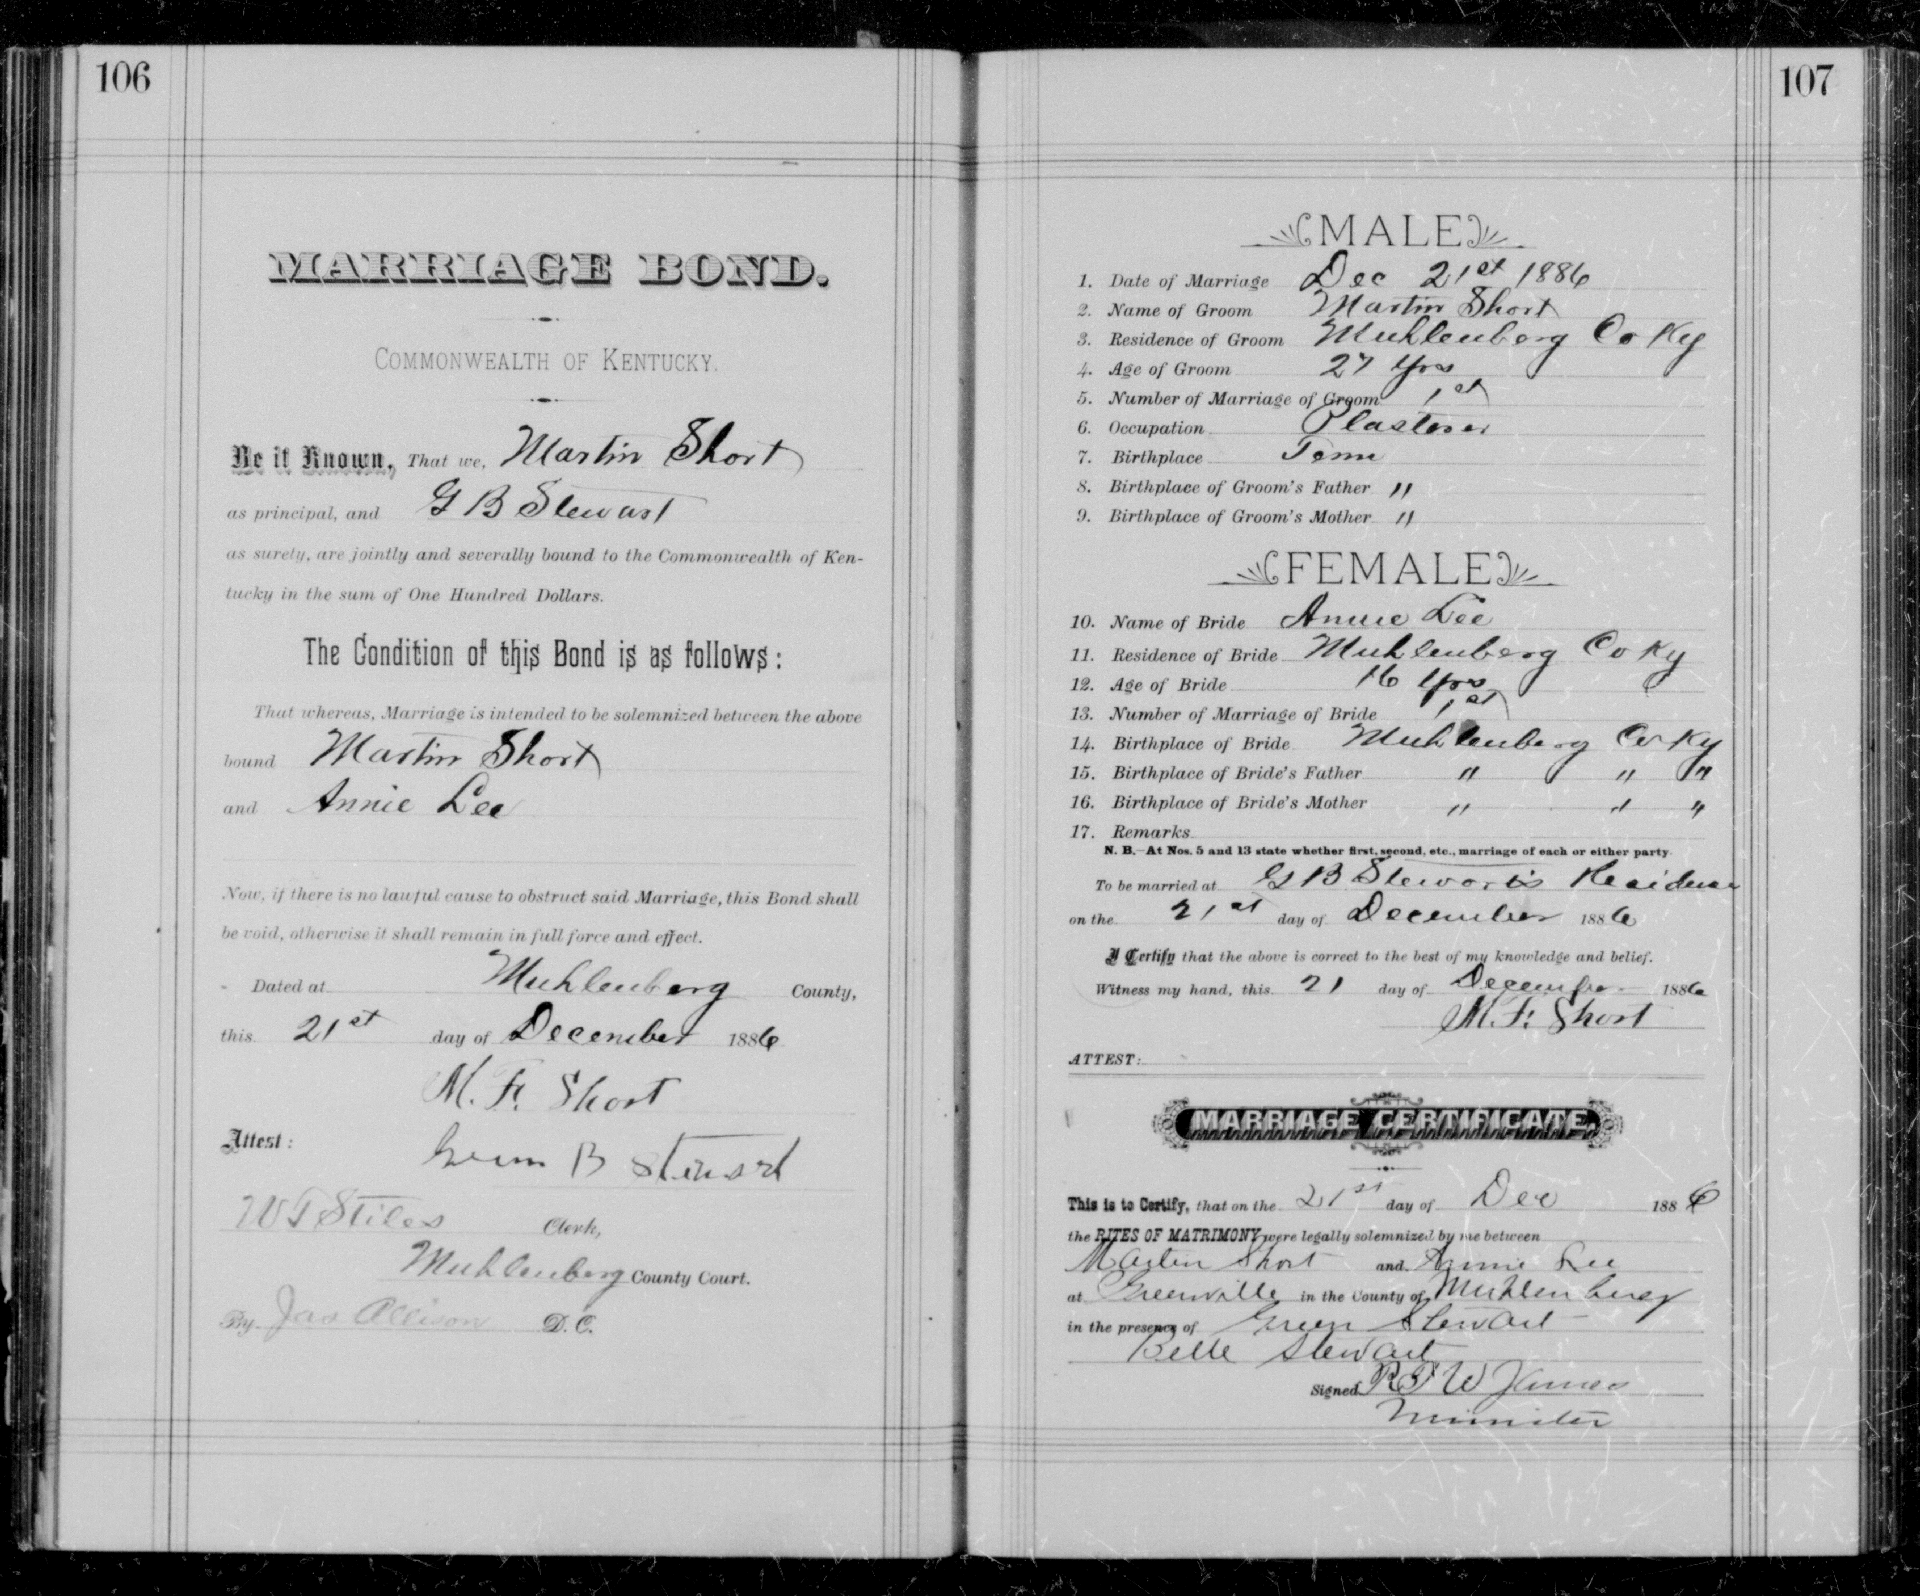 106
MARRIAGE BOND.
COMMONWEALTH OF KENTUCKY.
Be it Known, That we, Martin Short
as principal, and G B Stewart
as surety, are jointly and severally bound to the Commonwealth of Ken-
tucky in the sum of One Hundred Dollars.
The Condition of this Bond is as follows:
That whereas, Marriage is intended to be solemnized between the above
bound Martin Short
and Annie Lee
Now, if there is no lawful cause to obstruct said Marriage, this Bond shall
be void, otherwise it shall remain in full force and effect.
Dated at Muhlenberg County,
this 21st day of December 1886
M. F. Short
Attest: Green B Stewart
W T Stiles Clerk,
Muhlenberg County Court.
By Jas Allison D. C.
107
MALE
1. Date of Marriage Dec 21st 1886
2. Name of Groom Martin Short
3. Residence of Groom Muhlenberg Co Ky
4. Age of Groom 27 Yrs
5. Number of Marriage of Groom 1st
6. Occupation Plasterer
7. Birthplace Tenn
8. Birthplace of Groom's Father "
9. Birthplace of Groom's Mother "
FEMALE
10. Name of Bride Annie Lee
11. Residence of Bride Muhlenberg Co Ky
12. Age of Bride 16 Yrs
13. Number of Marriage of Bride 1st
14. Birthplace of Bride Muhlenberg Co Ky
15. Birthplace of Bride's Father " " "
16. Birthplace of Bride's Mother " " "
17. Remarks
N. B.—At Nos. 5 and 13 state whether first, second, etc., marriage of each or either party
To be married at G B Stewart's Residence
on the 21st day of December 1886
I Certify that the above is correct to the best of my knowledge and belief.
Witness my hand, this 21 day of December 1886
M. F. Short
ATTEST:
MARRIAGE CERTIFICATE.
This is to Certify, that on the 21st day of Dec 1886
the RITES OF MATRIMONY were legally solemnized by me between
Martin Short and Annie Lee
at Greenville in the County of Muhlenberg
in the presence of Green Stewart
Belle Stewart
Signed R T W James
Minister